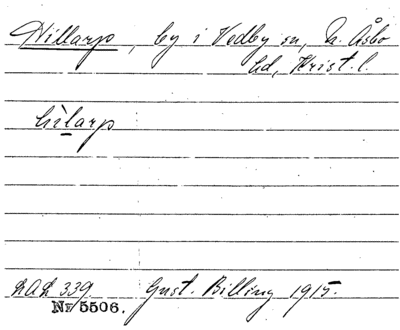 Hillarp, by i Vedby sn, N. Åsbo
hd, Krist. l.
hìlarp
LAL 339 Gust. Billing 1915.
Nr 5506.